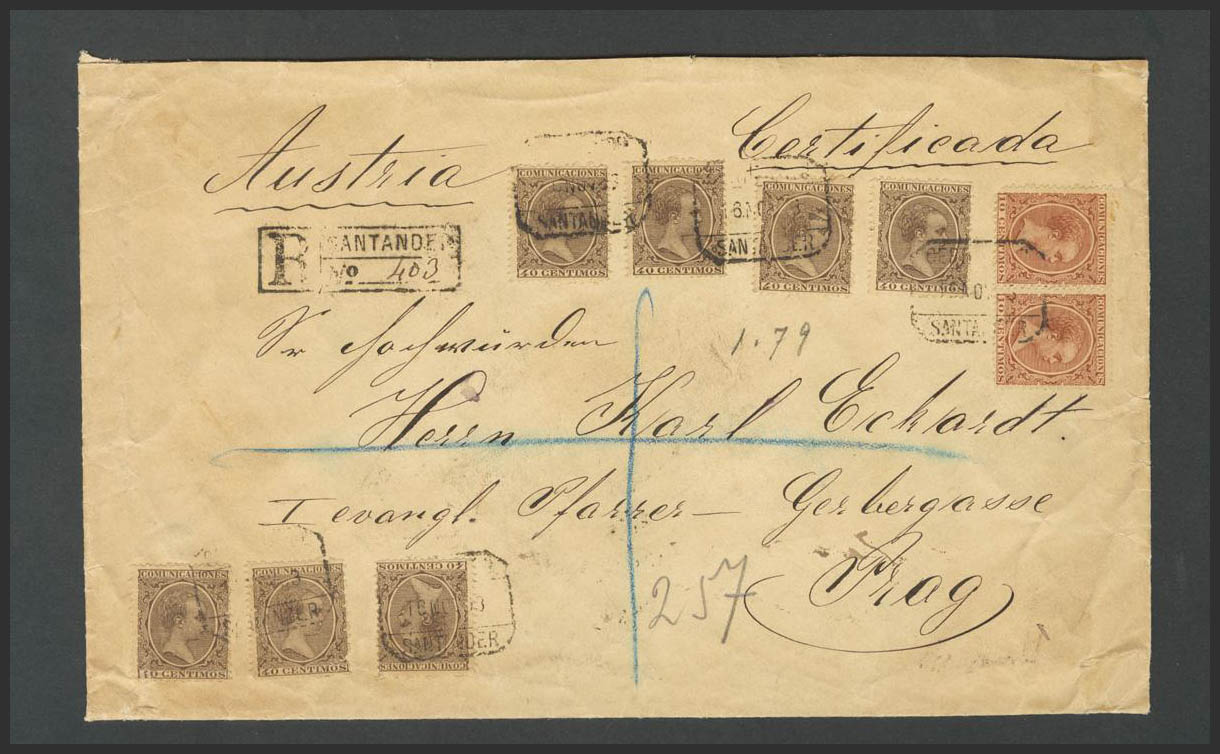 Austria
Certificada
R SANTANDER
No 403
COMUNICACIONES
40 CENTIMOS
COMUNICACIONES
40 CENTIMOS
COMUNICACIONES
40 CENTIMOS
COMUNICACIONES
40 CENTIMOS
COMUNICACIONES
10 CENTIMOS
COMUNICACIONES
10 CENTIMOS
SANTANDER
SANTANDER
SANTANDER
Sr Hochwürden
1.79
Herrn Karl Eckardt.
I evangl. Pfarrer — Gerbergasse
257
Prag
COMUNICACIONES
40 CENTIMOS
COMUNICACIONES
40 CENTIMOS
COMUNICACIONES
40 CENTIMOS
SANTANDER